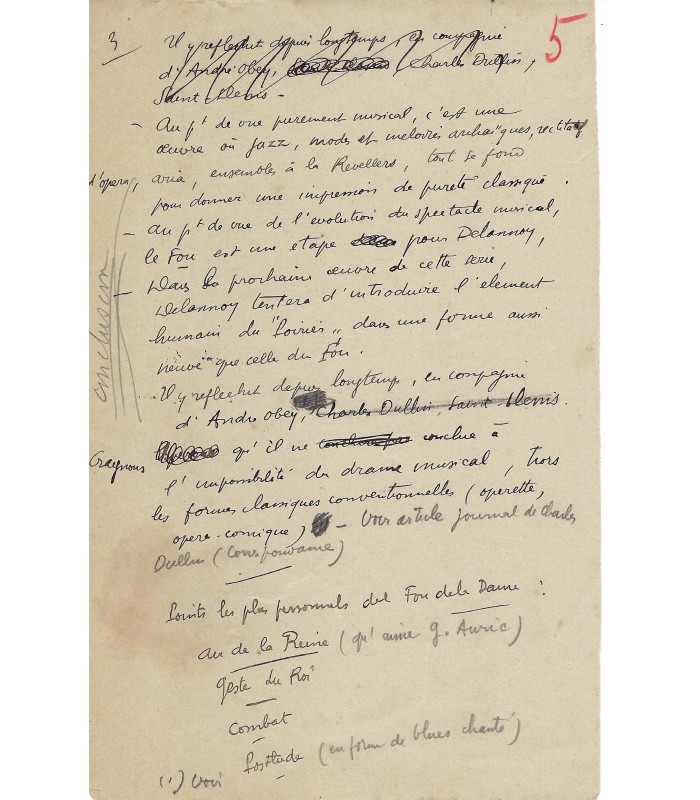 3
5
Il y reflechit depuis longtemps, en compagnie
d'André Obey, Charles Dullin,
Saint Denis -
- Au pt de vue purement musical, c'est une
œuvre où jazz, modes et melodies archaïques, recitatif
d'opera, aria, ensembles à la Revellers, tout se fond
pour donner une impression de pureté classique.
- Au pt de vue de l'evolution du spectacle musical,
le Fou est une etape pour Delannoy,
- Dans la prochaine œuvre de cette serie,
Delannoy tentera d'introduire l'element
humain du "Poirier" dans une forme aussi
neuve que celle du Fou.
conclusion
Il y reflechit depuis longtemps, en compagnie
d'Andre Obey, Charles Dullin, Saint-Denis.
Craignons qu'il ne conclue à
l'impossibilité du drame musical, hors
les formes classiques conventionnelles (operette,
opera-comique) - Voir article journal de Charles
Dullin (Correspondance)
Points les plus personnels del Fou de la Dame :
air de la Reine (qu'aime G. Auric)
geste du Roi
Combat
Postlude (en forme de blues chanté)
(1) Voir